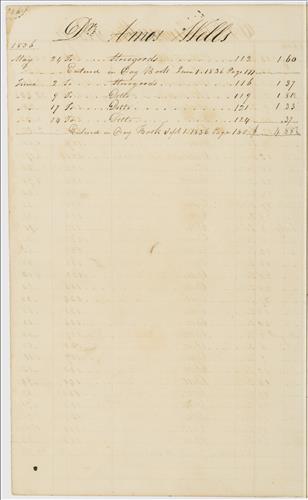 Dr. Amos Wells
1836
May 24 To Storegoods 112 1.60
Entered in Day Book June 1. 1836 Page 111
June 2 To Storegoods 116 1.37
9 To Ditto 119
17 To Ditto 121 1.23
19 To Ditto 124 .37
Entered in Day Book Sept 1. 1836 Page 130 $